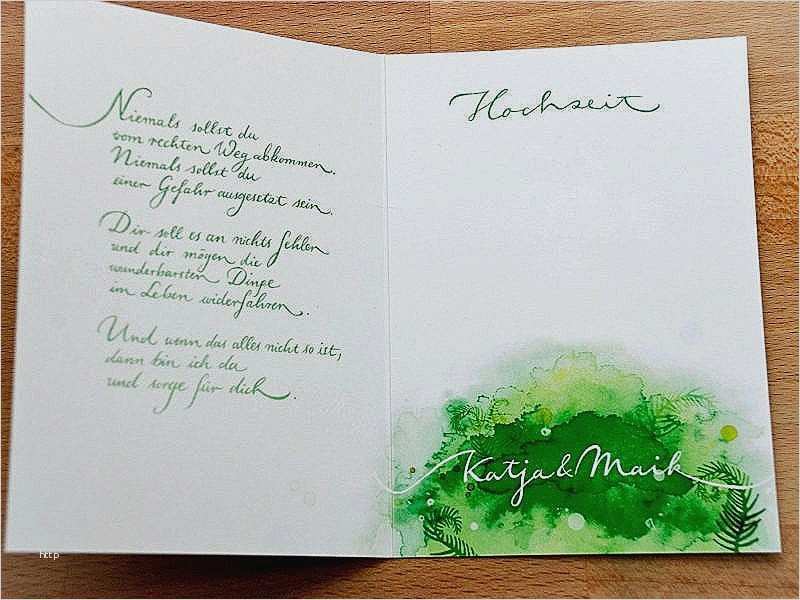 Niemals sollst du
vom rechten Weg abkommen.
Niemals sollst du
einer Gefahr ausgesetzt sein.
Dir soll es an nichts fehlen
und dir mögen die
wunderbarsten Dinge
im Leben widerfahren.
Und wenn das alles nicht so ist,
dann bin ich da
und sorge für dich.
Hochzeit
Katja & Maik
http